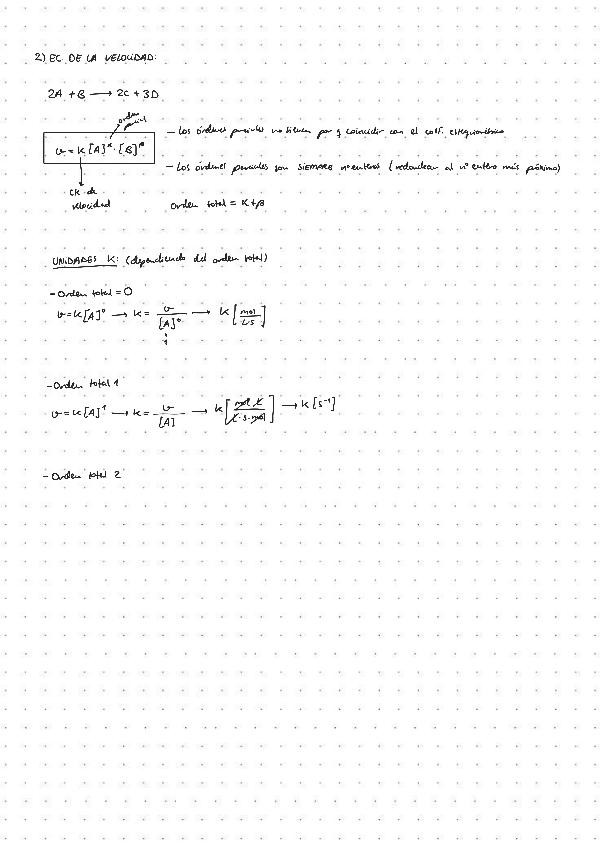 2) EC DE LA VELOCIDAD:
2A + B → 2C + 3D
orden parcial
- Los órdenes parciales no tienen por q coincidir con el coef. estequiométrico
v = K [A]^α · [B]^β
- Los órdenes parciales son SIEMPRE nº enteros (redondear al nº entero más próximo)
cte de
velocidad
Orden total = α + β
UNIDADES K: (dependiendo del orden total)
- Orden total = 0
v = K [A]^0 → K = v / [A]^0 → K [mol / L·s]
1
- Orden total 1
v = K [A]^1 → K = v / [A] → K [mol · L / L · s · mol] → K [s^-1]
- Orden total 2